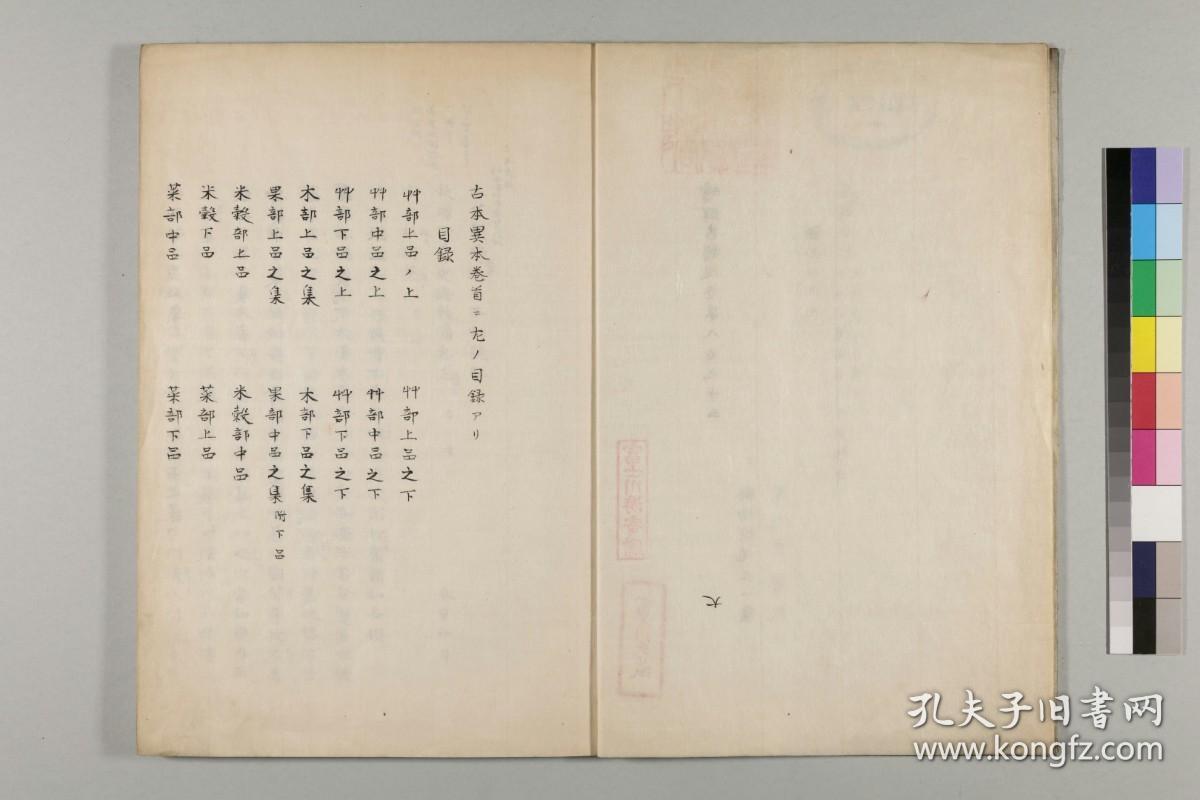 古本異本巻首ニ左ノ目録アリ
目録
艸部上品ノ上　艸部上品之下
艸部中品之上　艸部中品之下
艸部下品之上　艸部下品之下
木部上品之集　木部下品之集
果部上品之集　果部中品之集 附下品
米穀部上品　米穀部中品
米穀下品　菜部上品
菜部中品　菜部下品
孔夫子旧書网
www.kongfz.com